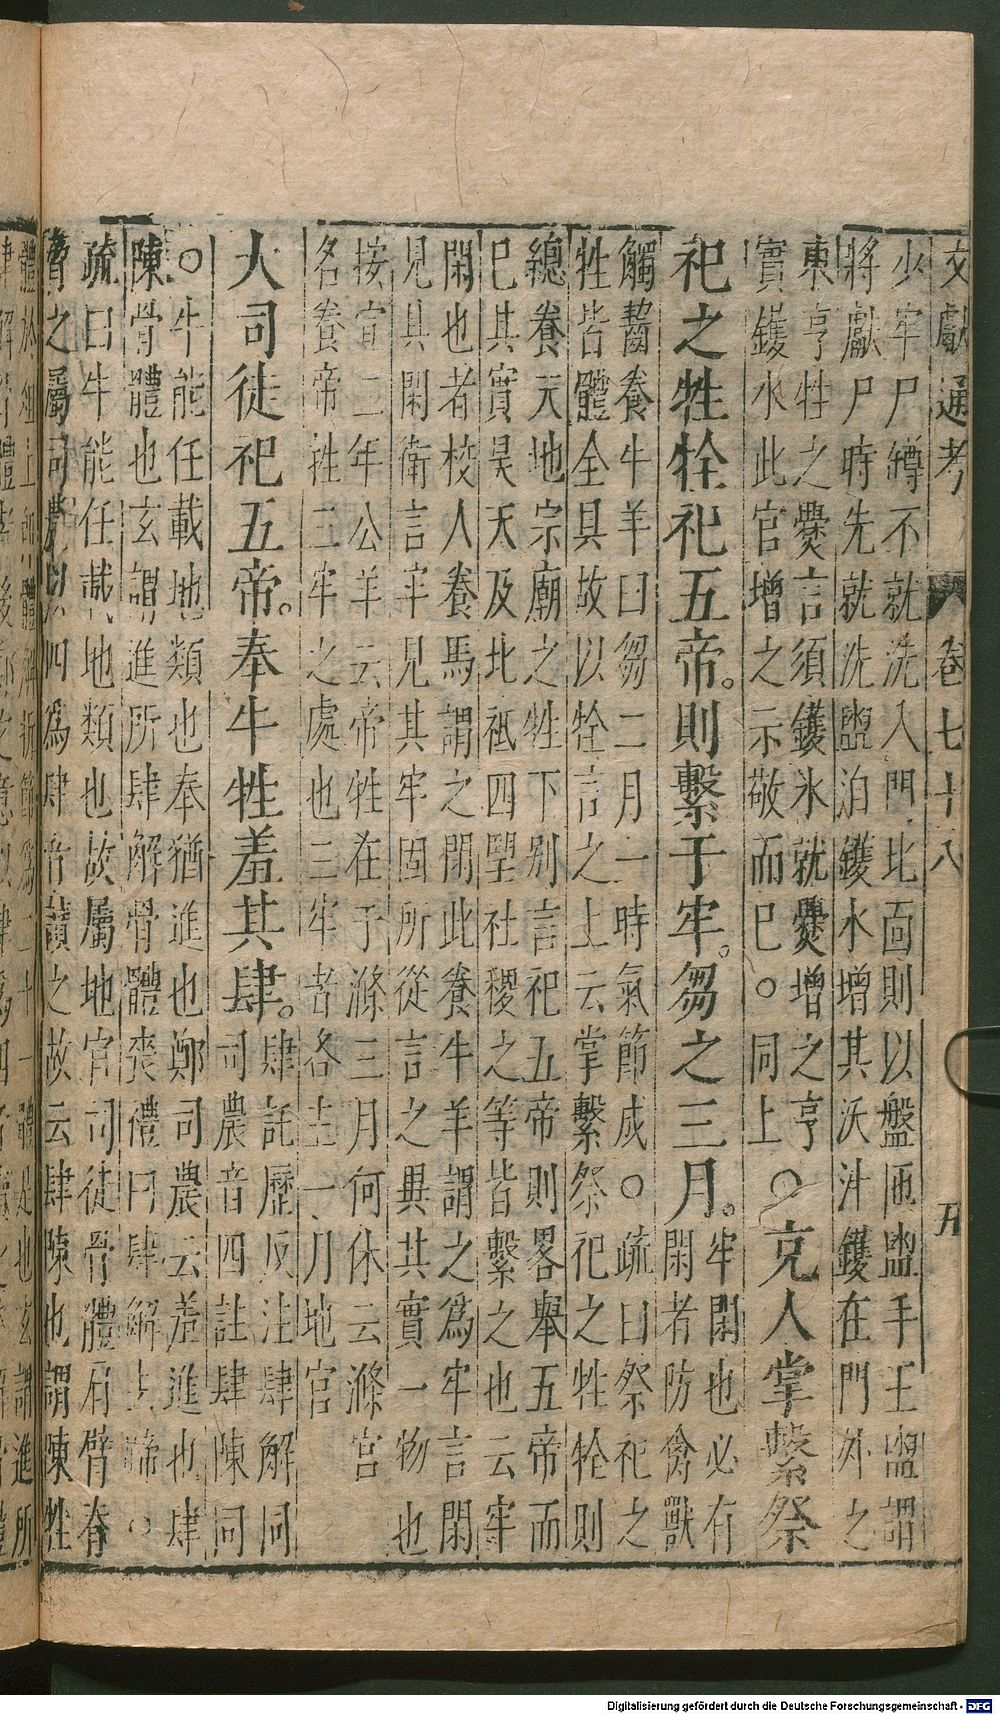 文獻通考 卷七十八 五
少牢尸罇不就洗入門北面則以盤匜盥手王盥謂
將獻尸時先就洗盥洎鑊水增其沃汁鑊在門外之
東亨牲之爨言須鑊水就爨增之亨
實鑊水此官增之示敬而已○同上
○充人掌繫祭
祀之牲牷祀五帝則繫于牢芻之三月
牢閑也必有
閑者防禽獸
觸齧養牛羊曰芻二月一時氣節成○疏曰祭祀之
牲皆體全具故以牷言之上云掌繫祭祀之牲牷則
總養天地宗廟之牲下別言祀五帝則畧舉五帝而
已其實昊天及北祗四朢社稷之等皆繫之也云牢
閑也者校人養馬謂之閑此養牛羊謂之為牢言閑
見其閑衛言牢見其牢固所從言之異其實一物也
按宣二年公羊云帝牲在于滌三月何休云滌宮
名養帝牲三牢之處也三牢者各主一月地官
大司徒祀五帝奉牛牲羞其肆
肆託歷反注肆解同
司農音四註肆陳同
○牛能任載地類也奉猶進也鄭司農云羞進也肆
陳骨體也玄謂進所肆解骨體䘮禮曰肆解去蹄○
疏曰牛能任載地類也故屬地官司徒骨體肩臂脊
脅之屬司農以 四為肆音讀之故云肆陳也謂陳牲
體於俎上即體解折節為二十一體是也玄謂進所
Digitalisierung gefördert durch die Deutsche Forschungsgemeinschaft - DFG